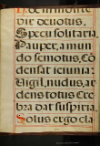 vir devotus,
Specu solitaria,
Pauper, a mun
do semotus, Co
densat scrinia:
Vigil, nudus, ar
dens totus Cre
bra dat suspiria,
Solus ergo cla